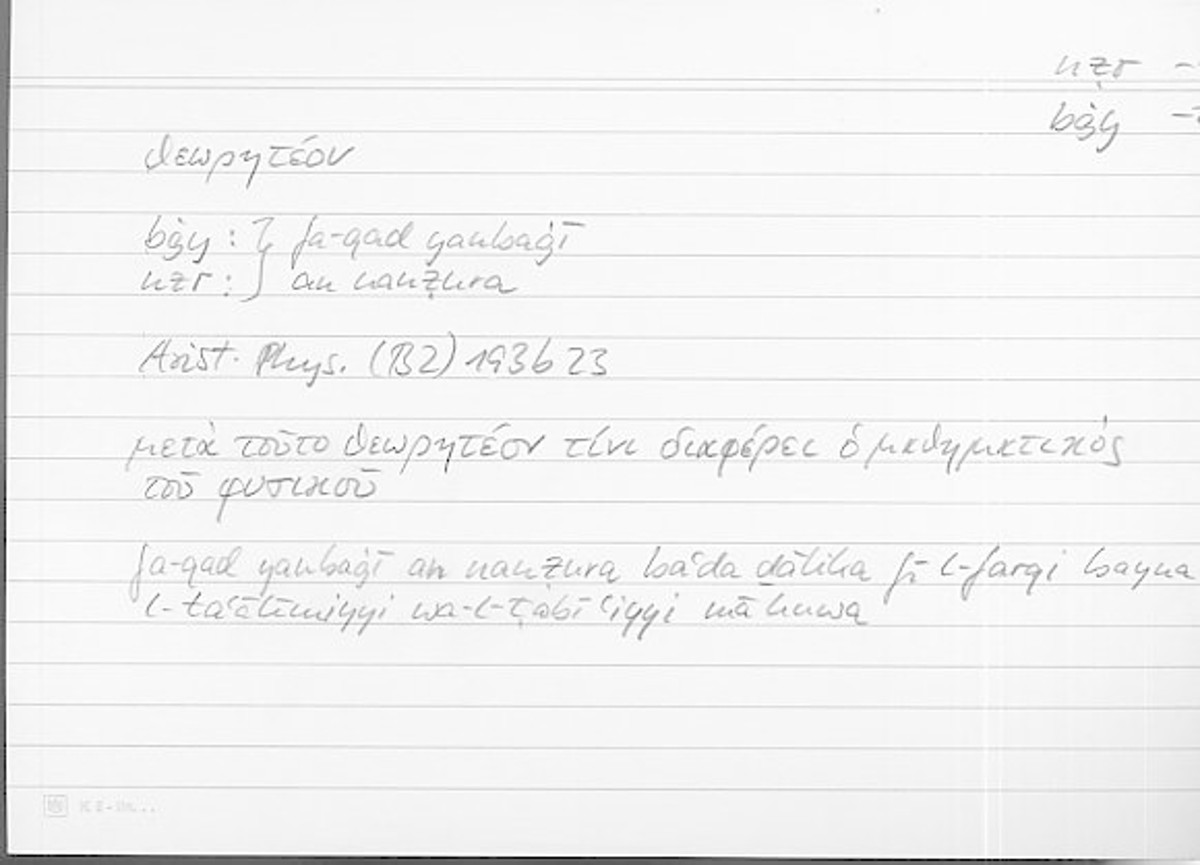 nẓr -
bġy -
θεωρητέον
bġy : } fa-qad yanbaġī
nẓr : } an nanẓura
Arist. Phys. (B2) 193b23
μετὰ τοῦτο θεωρητέον τίνι διαφέρει ὁ μαθηματικός
τοῦ φυσικοῦ
fa-qad yanbaġī an nanẓura baʿda ḏālika fī l-farqi bayna
l-taʿālīmiyyi wa-l-ṭabīʿiyyi mā huwa